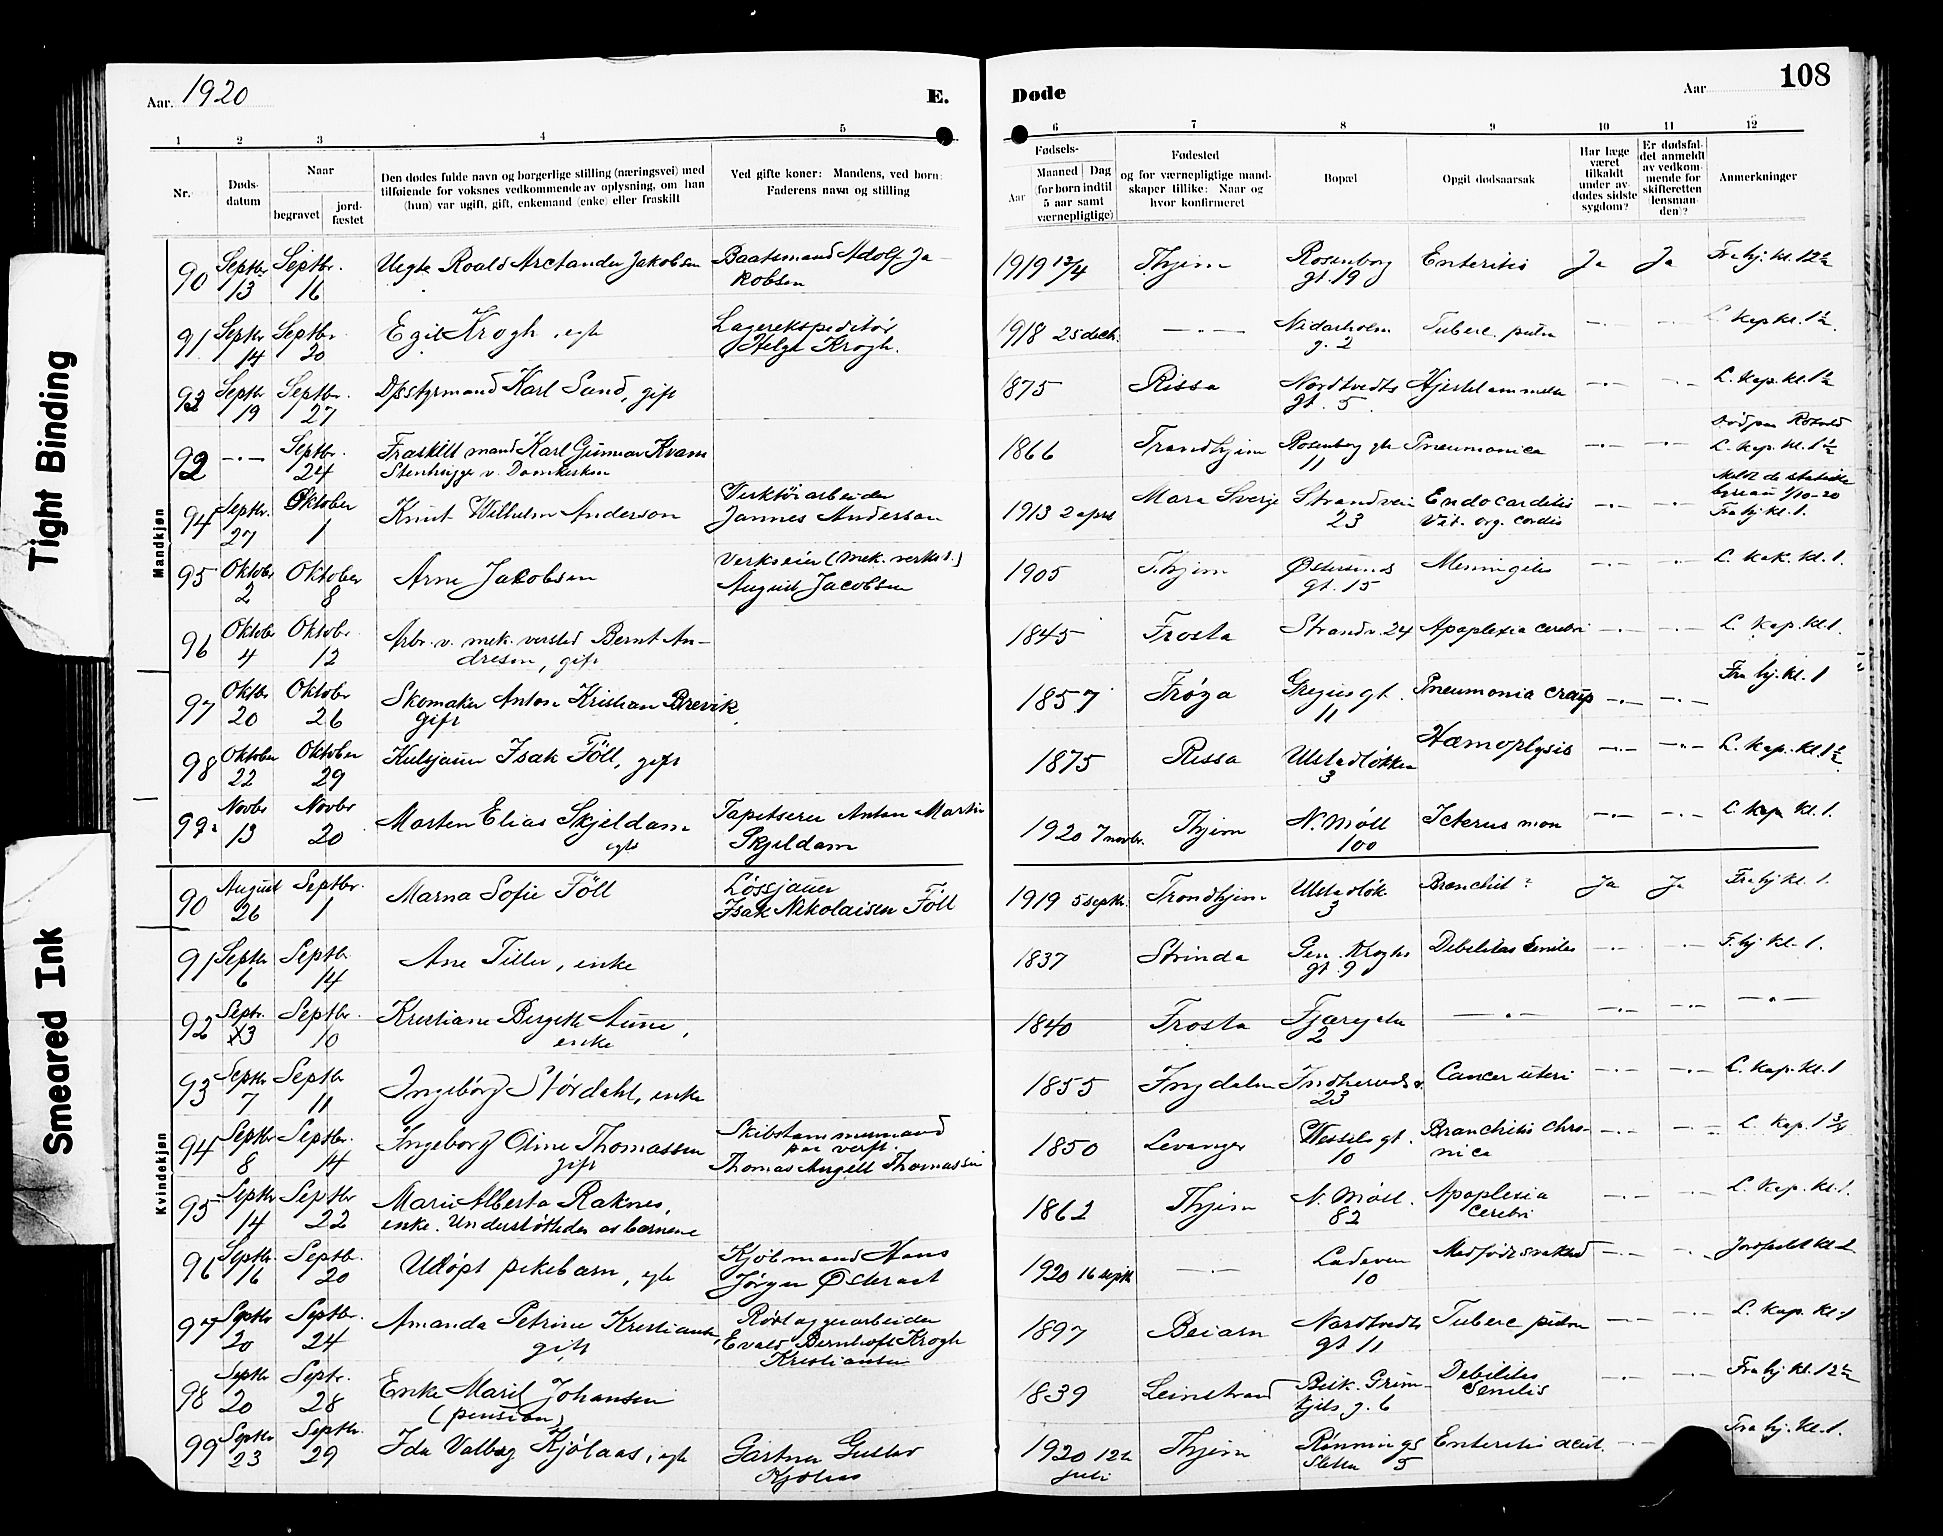 Tight Binding
Smeared Ink
Aar. 1920
E.
Døde
Aar
108
1 2 3 4 5 6 7 8 9 10 11 12
Nr.
Døds-
datum
Naar
begravet
jord-
fæstet
Den dødes fulde navn og borgerlige stilling (næringsvei) med
tilføiende for voksnes vedkommende av oplysning, om han
(hun) var ugift, gift, enkemand (enke) eller fraskilt
Ved gifte koner: Mandens, ved børn:
Faderens navn og stilling
Fødsels-
Aar
Maaned | Dag
(for børn indtil
5 aar samt
værnepligtige)
Fødested
og for værnepligtige mand-
skaper tillike: Naar og
hvor konfirmeret
Bopæl
Opgit dødsaarsak
Har læge
været
tilkaldt
under av-
dødes sidste
sygdom?
Er dødsfal-
det anmeldt
av vedkom-
mende for
skifteretten
(lensman-
den)?
Anmerkninger
Mandkjøn
90 Septbr. 13 Septbr. 16 Uegte Roald Arctander Jakobsen Baatsmand Adolf Ja-
kobsen 1919 13/4 Thjem Rosenborg
gt. 19 Enteritis Ja Ja Fra hj. kl. 12½
91 Septbr 14 Septbr. 20 Egil Krogh, egte Lagerekspeditør
Helge Krogh. 1918 25 decbr. —·— Nidarholm
g. 2 Tuberc. pulm —·— —·— L. kap kl. 1½.
93 Septbr 19 Septbr. 27 Dpsstyrmand Karl Sand, gift 1875 Rissa Nordtvedts
gt. 5. Hjertelammelse —·— —·— L. kap. kl. 1½
92 —·— Septbr. 24 Fraskilt mand Karl Gunnar Kvam
Stenhugge v. Domkirken 1866 Trondhjem Rosenborg gte
11 Pneumonica —·— —·— Død paa Rotvold
L. kap. kl. 1½
94 Septbr. 27 Oktober 1 Knut Wilhelm Anderson Verktøiarbeider
Jannes Anderson 1913 2 april Mora Sverje Strandvein
23 Endocarditis
Vit. org. cordis —·— —·— Meldt de statistiske
byreau 4/10-20
Fra hj. kl. 1.
95 Oktobr 2 Oktober 8 Arne Jakobsen Verkseier (mek. verkst.)
August Jacobsen 1905 Thjem Østersunds
gt. 15 Meningitis —·— —·— L. kak. kl. 1.
96 Oktobr 4 Oktobr 12 Arb. v. mek. versted Bernt An-
dresen, gift 1845 Frosta Strandv. 24 Apoplexia cerebri —·— —·— L. kap. kl. 1.
97 Oktbr 20 Oktobr 26 Skomaker Anton Kristian Brevik,
gift 1857 Frøya Gregus gt.
11 Pneumonia croup —·— —·— Fra hj. kl. 1
98 Oktober 22 Oktober 29 Kulsjauer Isak Föll, gift 1875 Rissa Ulstadløkken
3 Hæmoplysis —·— —·— L. kap. kl. 1½.
99 Novbr 13 Novbr 20 Morten Elias Skjeldam
egte Tapetserer Anton Martin
Skjeldam 1920 7 novbr. Thjem N. Møll
100 Icterus mon —·— —·— L. kap kl. 1.
Kvindekjøn
90 August 26 Septbr. 1 Marna Sofie Föll Løssjauer
Isak Nikolaisen Föll 1919 5 septbr. Trondhjem Ulstadløk
3 Bronchit? Ja Ja Fra hj kl. 1.
91 Septbr 6 Septbr. 14 Ane Tiller, enke 1837 Strinda Gen. Kroghs
gt. 9 Debelitas senilis —·— —·— F. hj kl. 1.
92 Septr. 3 Septbr. 10 Kristiane Bergitte Aune,
enke 1840 Frosta Fjæregata
2 —·— —·— —·— —·—
93 Septbr 7 Septbr 11 Ingeborg Størdahl, enke 1855 Ingdalen Indherreds v.
23 Cancer uteri —·— —·— L. kap. kl. 1
94 Septbr 8 Septbr. 14 Ingeborg Oline Thomassen
gift Skibstømmermand
paa verft
Thomas Angell Thomassen 1850 Levanger Wessels gt.
10 Bronchitis chro-
nica —·— —·— L. kap. 1¾
95 Septbr 14 Septbr 22 Marie Alberta Raknes,
enke. Understøttedes as barnene 1862 Thjem N. Møll.
82 Apoplexia
cerebri —·— —·— L. kap. kl. 1.
96 Septbr. 16 Septbr. 20 Udøpt pikebarn, egte Kjøbmand Hans
Jørgen Østeraat 1920 16 septbr —·— Ladeveien
10 Medfødt svakhed —·— —·— Jordfæstet kl 2
97 Septbr 20 Septbr. 24 Amanda Petrine Kristiansen,
gift Rørlæggerarbeider
Evald Bernhoft Krogh
Kristiansen 1897 Beiarn Nordtvedts
gt 11 Tuberc pulm —·— —·— L. kap. kl. 1
98 Septbr 20 Septr. 28 Enke Marit Johansen
(pension) 1839 Leinstrand Bisk. Grim-
kjels g. 6 Debilitis
senilis —·— —·— Fra hj kl. 12½
99 Septbr 23 Septbr. 29 Ida Valborg Kjølaas, egte Gartner Gustav
Kjølaas 1920 12te
juli Thjem Rønnings
sletten 5 Enteritis acut. —·— Fra hj. kl. 1.